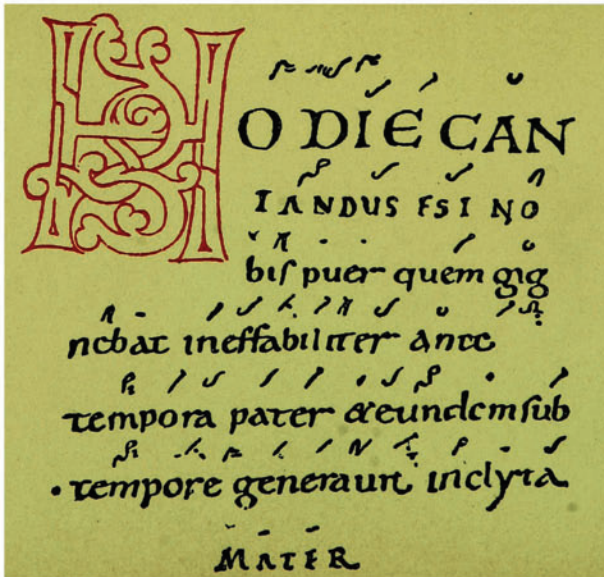 HODIE CAN
TANDUS EST NO
bis puer quem gig
nebat ineffabiliter ante
tempora pater & eundem sub
· tempore generavit inclyta
MATER